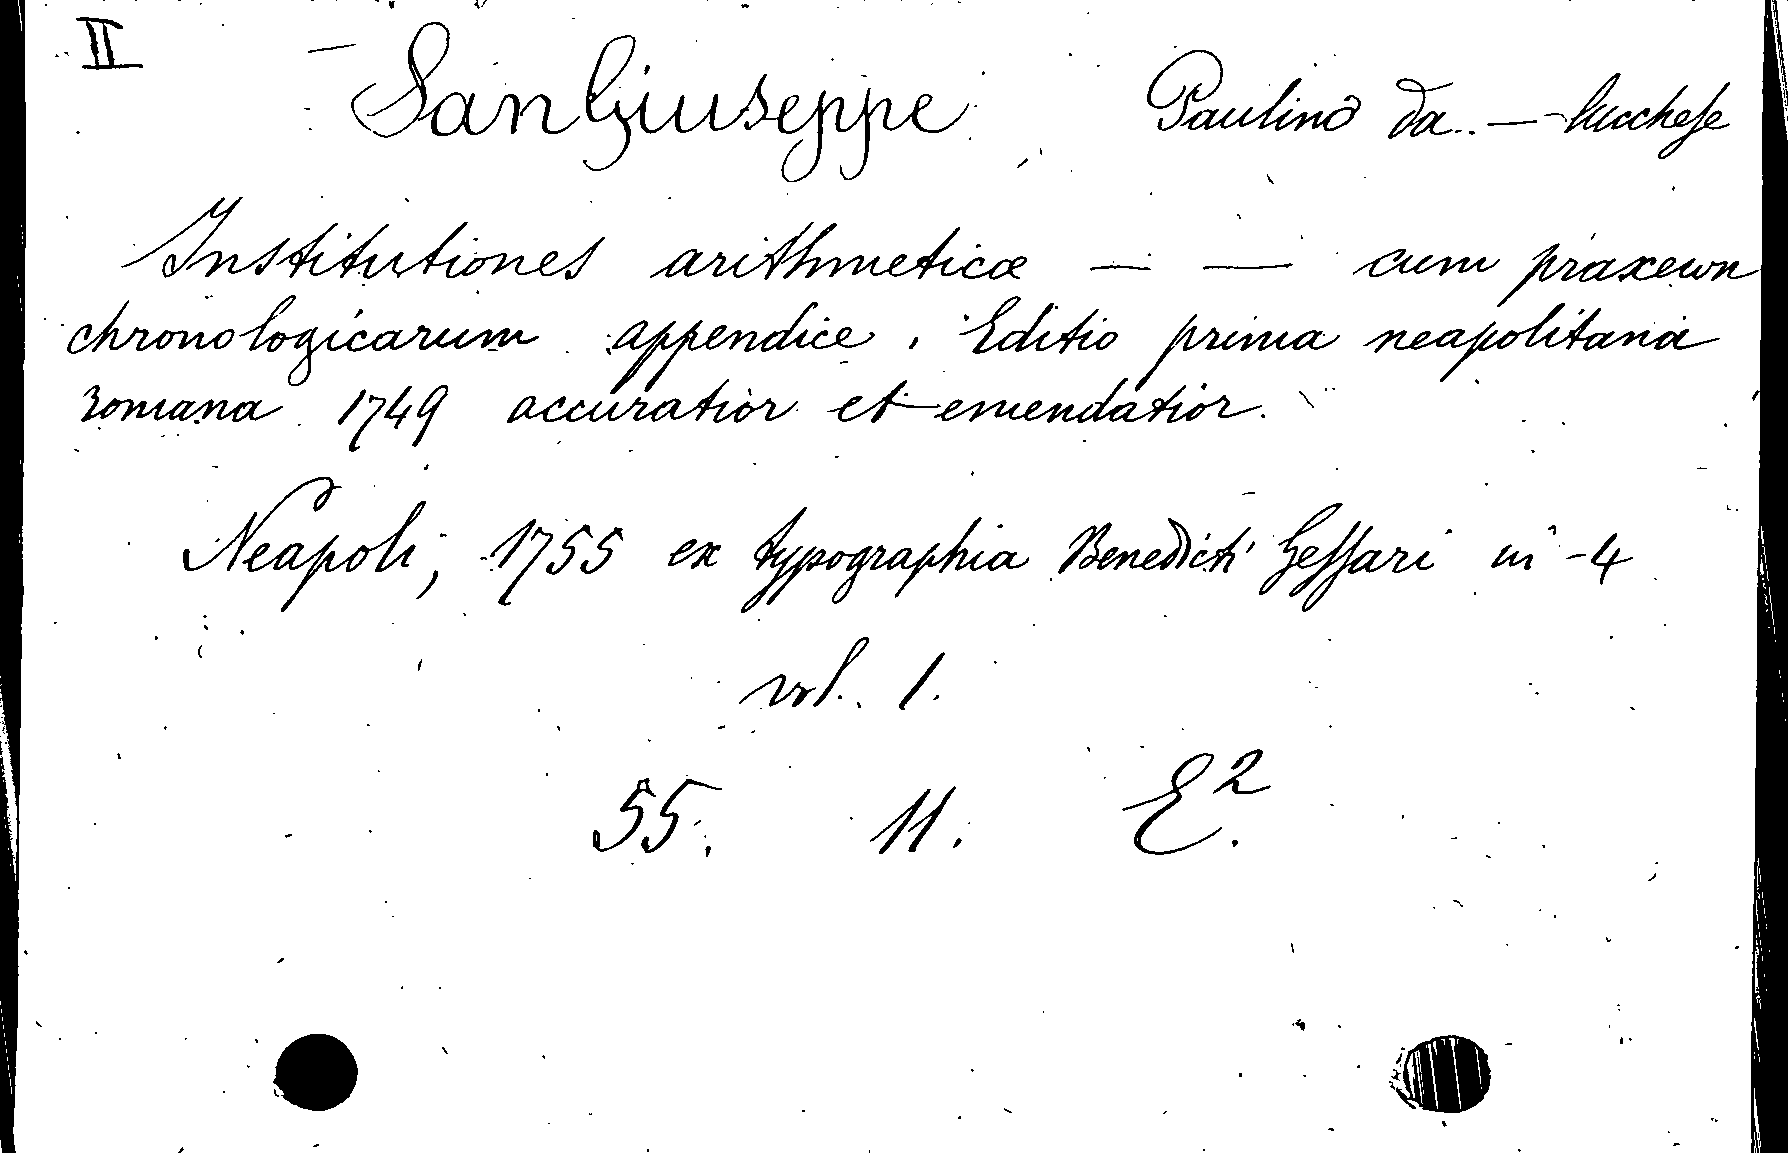 II — SanGiuseppe Paulino da — Lucchese
Institutiones arithmeticæ — — cum praxewn
chronologicarum appendice. Editio prima neapolitana
romana 1749 accuratior et emendatior.
Neapoli, 1755 ex typographia Benedicti Gessari in-4
vol. 1.
55. 11. E².